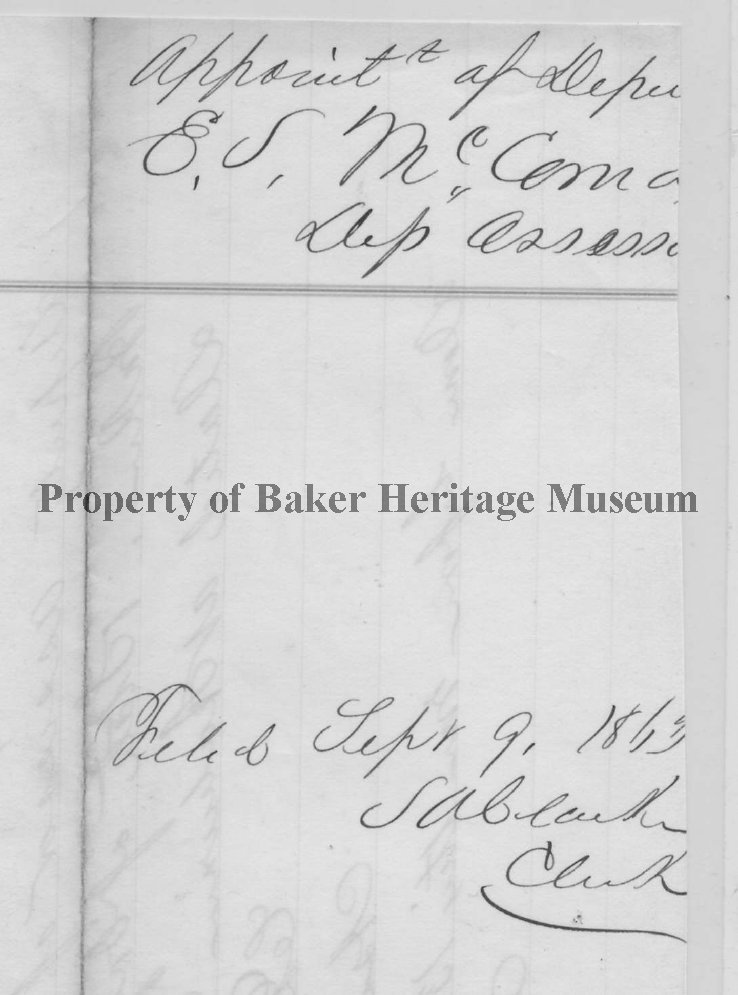 Appointt of Depu
E. S. Mc Coma
Dep Assess
Property of Baker Heritage Museum
Filed Sept 9, 1863
S A Clarke
Clerk